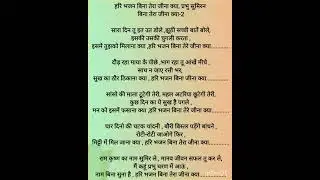 हरि भजन बिना तेरा जीना क्या, प्रभु सुमिरन
बिना तेरा जीना क्या-2
सारा दिन तू इत उत डोले ,झूठी सच्ची बातें बोले,
इसकी उसकी चुगली करता ,
इसमें तुझको मिलाना क्या ,हरि भजन बिना तेरा जीना क्या............
दौड़ रहा माया के पीछे ,भाग रहा तू आंखें मीचे ,
साथ न जाए रत्ती भर,
सुख का और ठिकाना क्या ,हरि भजन बिना तेरे जीना क्या............
सांसो की माला टूटेगी तेरी, महल अटरिया छूटेगी तेरी,
कुछ दिन का ये सुख है पगले ,
मन को इसमें फसाना क्या ,हरि भजन बिना तेरे जीना क्या............
चार दिनों की चटक चांदनी , बीरा बिस्तर पड़ेंगे बांधने ,
रोते-रोते जाओगे फिर ,
मिट्टी में मिल जाना क्या , हरि भजन बिना तेरा जीना क्या............
राम कृष्ण का नाम सुमिर ले , मानव जीवन सफल तू कर ले,
मैं कहूं प्रभु चरण में आऊं ,
नाम बिना सुना है , हरि भजन बिना तेरा जीना क्या............